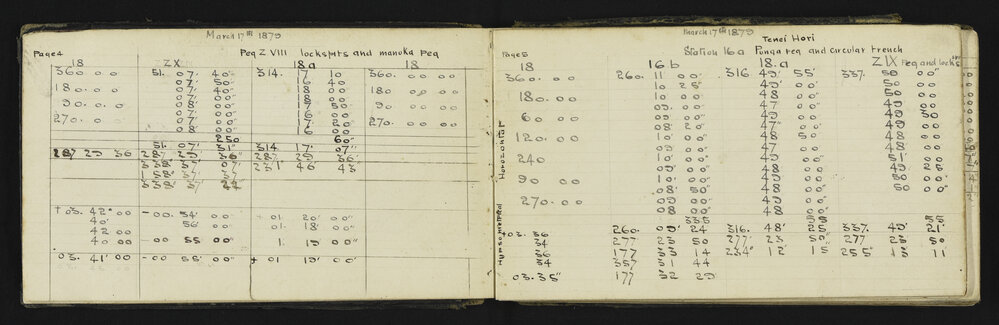 March 17th 1879
Page 4
Peg Z VIII lockspits and manuka peg
18 ZX 18a 18
360 00 00 51. 07' 40" 314. 17 10 360. 00 00
07' 50" 16 40
180. 00 00 07' 40" 18 00 180 00 00
08' 00" 18 00"
90. 00. 00 07' 00" 17 50" 90 00 00
08' 00" 16 00"
270. 00 00 07' 00" 17 20" 270. 00 00
08' 00" 16 00"
250 60"
51. 07' 31" 314 17' 07"
287 29 36 287 29 36" 287 29 36"
338' 37' 07 231' 46' 43
158' 37' 37
338' 37'
+ 03. 42' 00 - 00 54' + 01. 20' 00"
40' 56' 00" 01. 18' 00"
42 00
40 00 - 00 55 00" 1. 19 00"
03. 41' 00 - 00 55' 00" + 01 19' 00"
March 17th 1879
Tenei Hori
Page 5 Station 16a Punga peg and circular trench
18 16 b 18. a ZIX Peg and lock spit
Horozontal
360. 00 00 260. 11 00" 316 49' 55' 337. 50 00"
10 25" 49' 00" 50 00"
180. 00 10 00" 48 00" 50 00"
10 00" 48 00" 49 00"
6 0 00 09' 00" 49' 00" 49 50
08' 2 47' 20" 49 00"
120. 00 10 00" 48 50 48 00"
10' 00" 47 00" 49 00"
240 10' 00" 49 00" 51' 00"
09' 00" 49' 00" 49 25
90 00 10' 00" 48 00" 50 00"
08' 50" 48 00" 50 00"
270. 00 09 00" 48 00"
08 00" 48 00"
335 55 55
+03. 36 260 09' 24 316. 48' 25" 337. 49' 21"
34 277 23 50 277 23 50" 277 23 50
36 177 33 14 234° 12' 15 255° 13 11
34 357 31 44
03. 35" 177 32 29